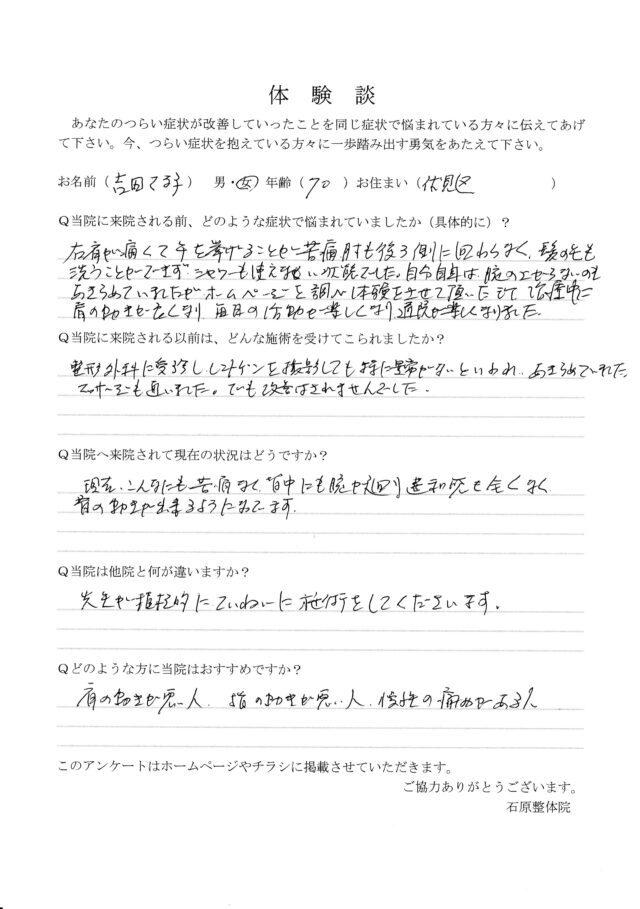 体 験 談
あなたのつらい症状が改善していったことを同じ症状で悩まれている方々に伝えてあげ
て下さい。今、つらい症状を抱えている方々に一歩踏み出す勇気をあたえて下さい。
お名前（吉田てる子） 男・女 年齢（70 ）お住まい（伏見区 ）
Q当院に来院される前、どのような症状で悩まれていましたか（具体的に）？
右肩が痛くて手を挙げることが苦痛 肘も後ろ側に回わらなく、髪の毛も
洗うことができず シャワーも使えない状態でした。自分自身は腕の上がらないのも
あきらめていましたがホームページを調べ体験をさせて頂いた 治療中に
肩の動きが良くなり 毎日の 楽しくなり 通院が楽しくなりました。
Q当院に来院される以前は、どんな施術を受けてこられましたか？
整形外科に受診し レントゲンを撮影しても特に異常がないといわれ、あきらめていました
マッサージも通いました。でも改善はされませんでした。
Q当院へ来院されて現在の状況はどうですか？
現在、こんなにも苦痛なく、背中にも腕が回り 違和感も全くなく
肩の動きが出来るようになってます。
Q当院は他院と何が違いますか？
先生が積極的にていねいに施術をしてくださいます。
Qどのような方に当院はおすすめですか？
肩の動きが悪い人、指の動きが悪い人、慢性の痛みがある人
このアンケートはホームページやチラシに掲載させていただきます。
ご協力ありがとうございます。
石原整体院